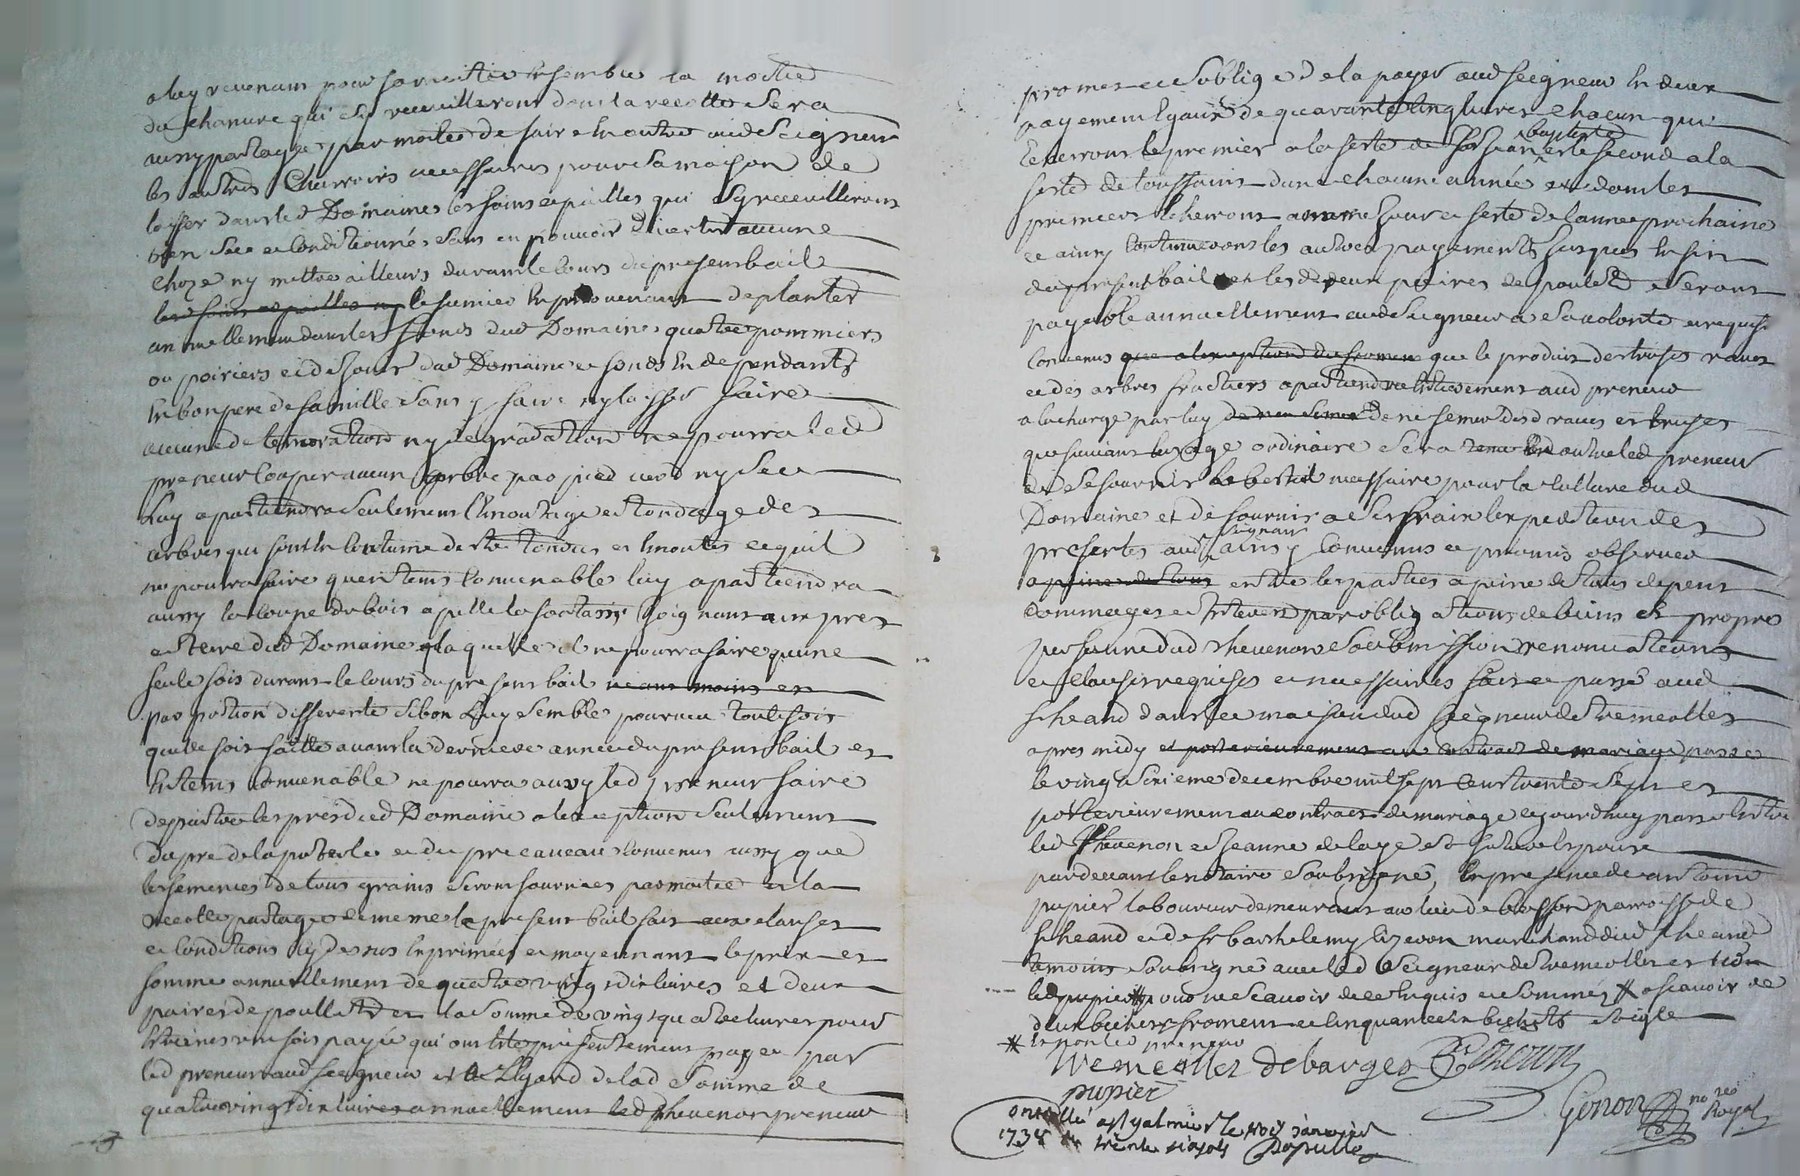 a luy revenans pour sa moitié ensemble la moitié
du chanvre qui s'y recueilleront dont la recolte sera
aussy partagé par moitié de faire en outre aud Seigneur
les autres charrois necessaires pour sa maison de
laisser dans led Domaine les foins et pailles qui s'y receuilleront
bien sec et conditionnés sans en pouvoir divertir aucune
choze ny mettre ailleurs durant le cours du present bail
les foins et pailles ny le fumier en provenant de planter
annuellement dans les fonds dud Domaine quatre pommiers
ou poiriers et de jouir dud Domaine et fonds en dependants
en bon pere de famille sans y faire ny laisser faire
aucune deterioration ny degradation ne pourra led
preneur couper aucun arbre par pied verd ny sec
luy apartiendra seulement l'emoutage et tondage des
arbres qui sont en coutume d'estre tondus et emoutés ce quil
ne pourra faire quen tems convenable luy apartiendra
aussy la coupe du bois apellé joignant aux pres
et terre dud Domaine laquelle il ne pourra faire quune
seule fois durant le cours du present bail et aux moins en
par portion differente si bon luy semble pourveu toutefois
quelle soit faitte avant la derniere année du present bail et
en tems convenable ne pourra aussy led preneur faire
depaitre les pres dud Domaine a lexception seulement
du pre de la et du pre convenus aussy que
les semences de tous grains seront fournies par moitié et la
recolte partagée de meme le present bail fait aux clauses
et conditions cy dessus exprimées et moyennant le prix et
somme annuellement de quatre vingt dix livres et deux
paires de poullets et la somme de vingt quatre livres pour
etreines une fois payée qui ont eté presentement payée par
led preneur aud Seigneur et a l'egard de lad somme de
quatre vingt dix livres annuellement led Thevenon preneur
promet et s'oblige de la payer aud Seigneur en deux
payements egaux de quarante cinq livres chacun qui
echerront le premier a la feste de St Jean baptiste et le second a la
feste de toussaint dune chacune année et dont les
premiers echerront a meme jour et feste de lannée prochaine
et ainsy continueront les autres payements jusques en fin
du present bail et les deux paires de poulets seront
payable annuellement aud Seigneur a sa volonté et requise
convenus que a lexception du froment que le produit des truffes raves
et des arbres fruitiers apartiendra entierement aud preneur
a la charge par luy de nen semer de ne semer desd raves et truffes
que suivant lusage ordinaire sera tenu en outre led preneur
de se fournir le bestail necessaire pour la culture dud
Domaine et de fournir a ses frais lexpedition des
presentes aud Seigneur ainsy convenus et promis observer
a peine de tous entre les parties a peine de tous depens
dommages et interets par obligations de biens et propre
personne dud Thevenon soubmission renonciations
et clauses requises et necessaires fait et passé aud
St heand dans la maison dud Seigneur de Tremeolles
apres midy et posterieurement au contract de mariage passé
le vingt sixieme decembre mil sept cent trente sept et
posterieurement au contract de mariage ce jourdhuy passé entre
led Thevenon et Jeanne delaye sa future epouse
par devant le notaire soubsigné, en presence de antoine
pupier laboureur demeurant au lieu de parroisse de
St heand et de Sr barthelemy marchand dud St heand
temoins soussigné avec led Seigneur de Tremeolles et non
led preneur pour ne scavoir de ce enquis et sommés * a scavoir de
deux bichets froment et cinquante bichets seigle
* et non led preneur
Tremeolles Debarges
pupier
Genon no re Royal
onrollé a St galmier le trois janvier
1738 Rx trente six sols